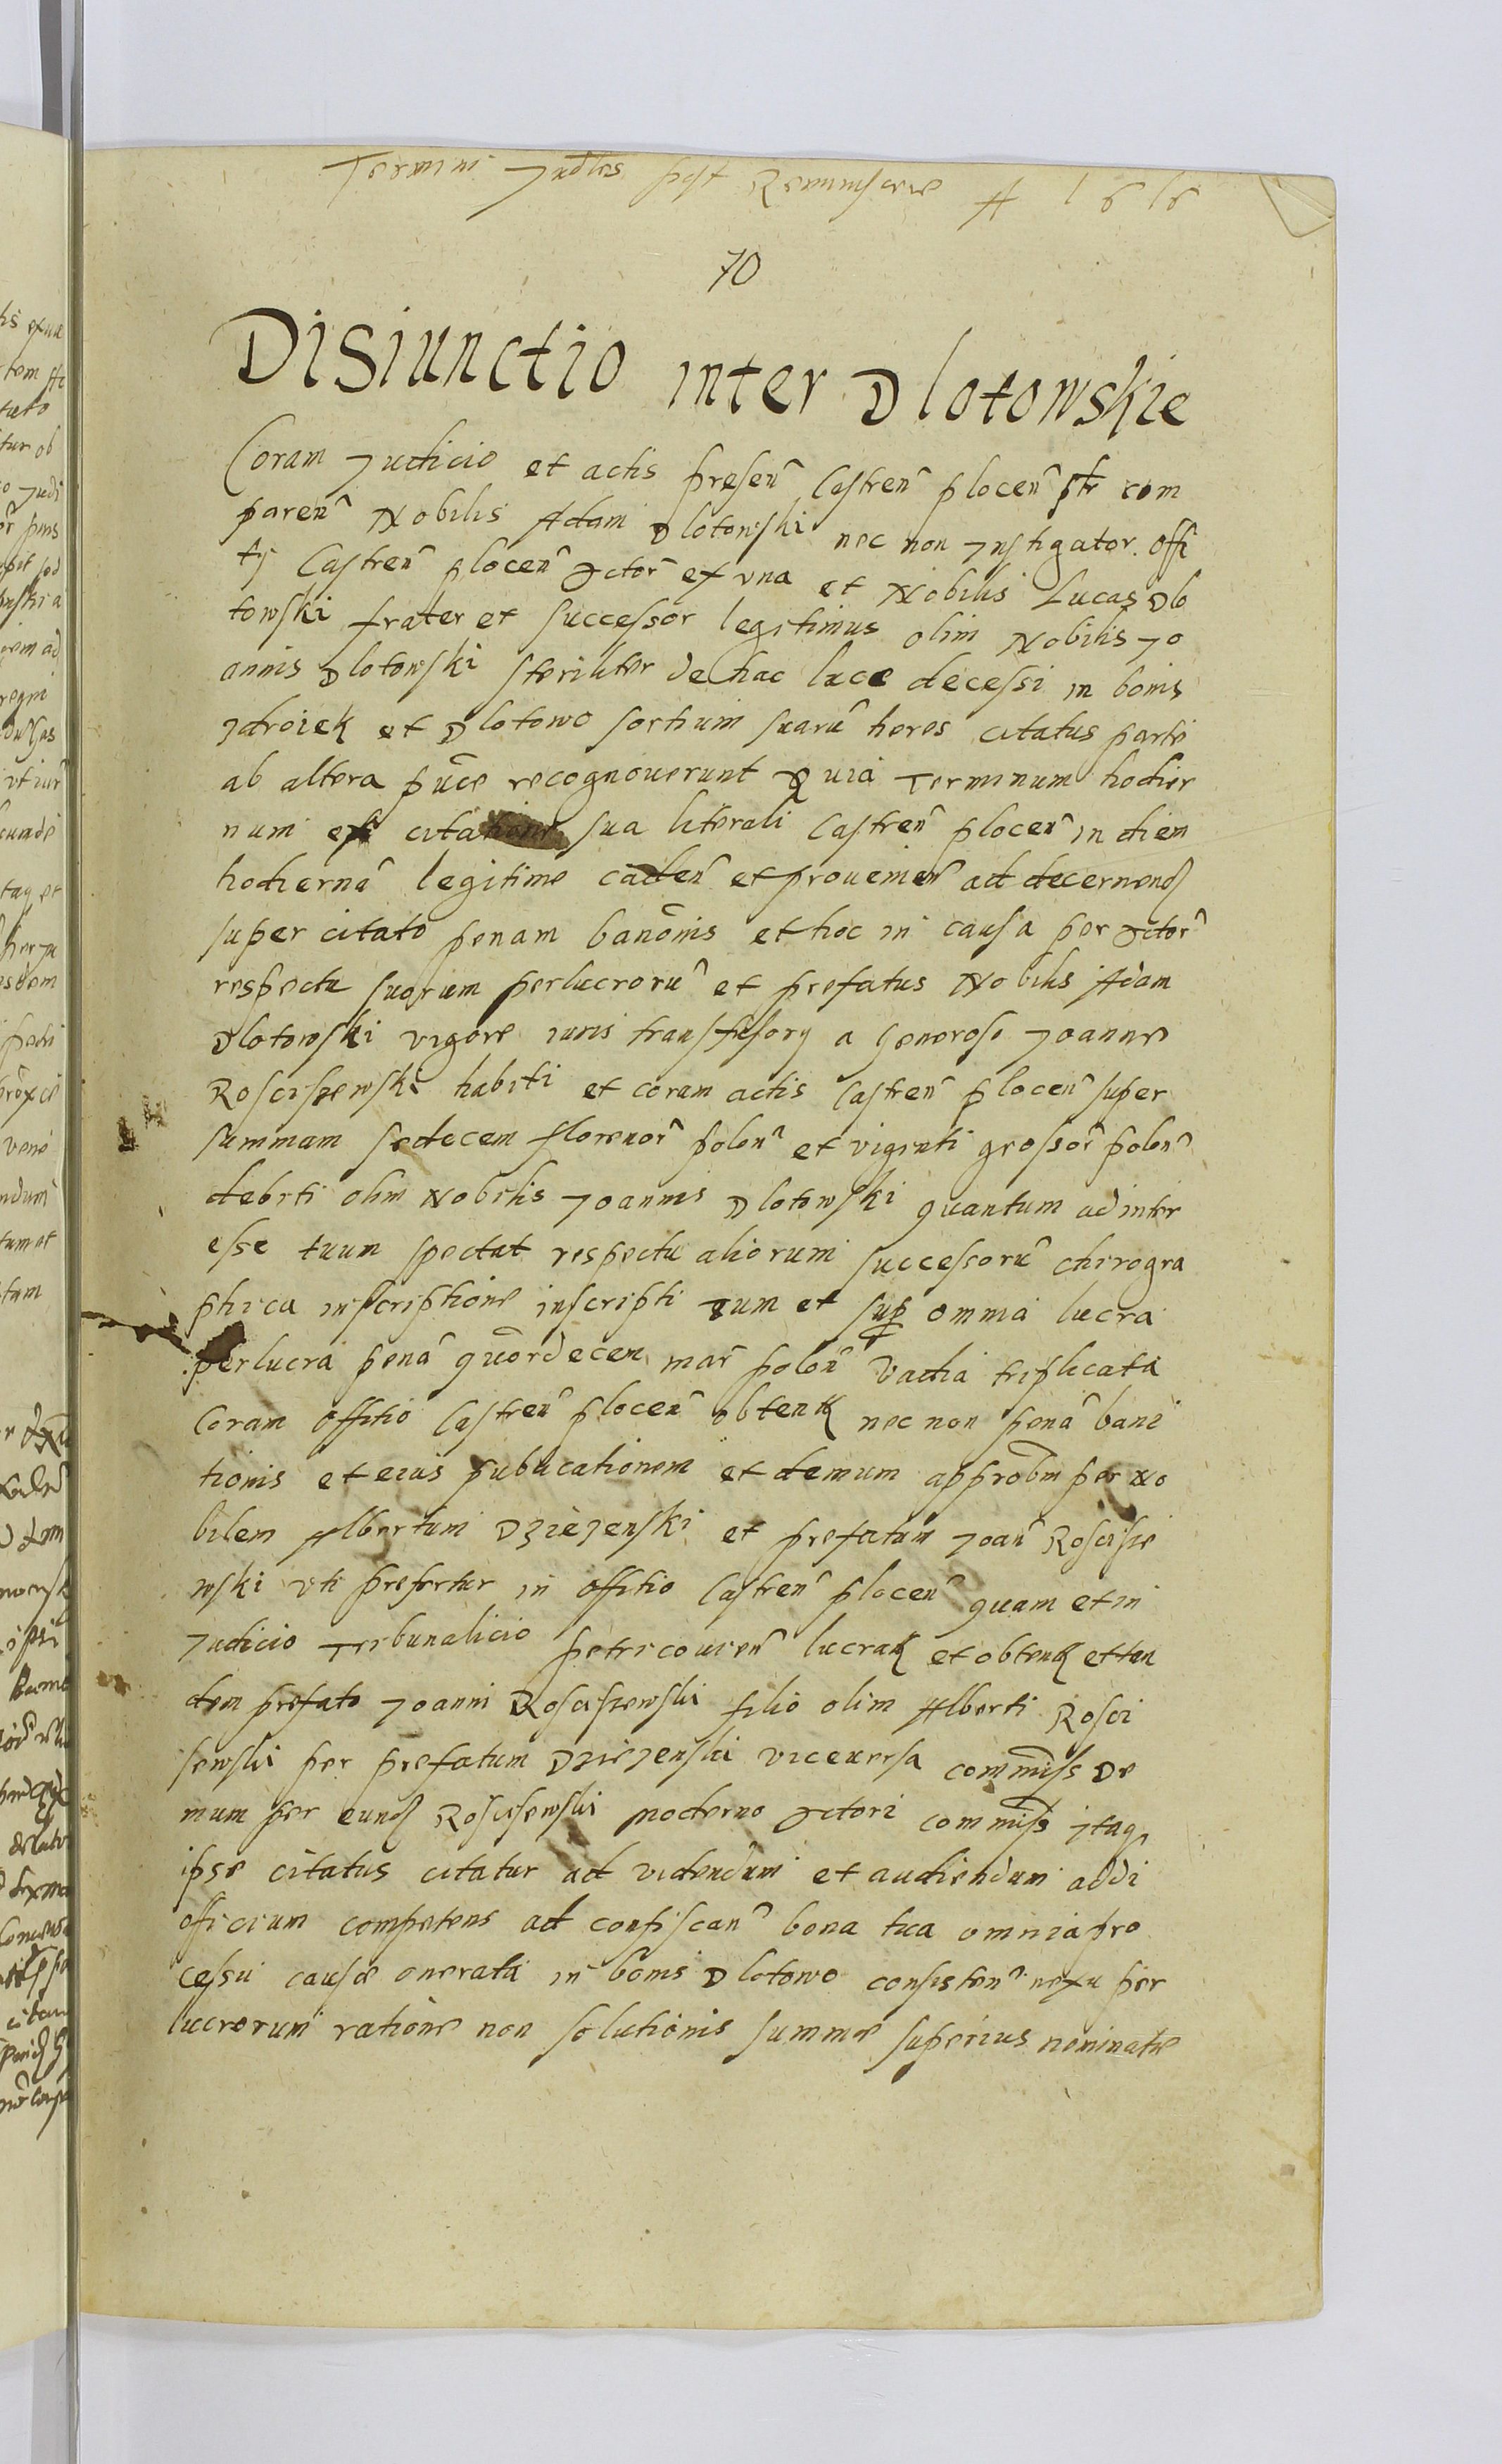 Termini Judles post Reminiscere A 1616
70
Disiunctio inter Dlotowskie
Coram Judicio et actis presen Castren plocen ptr com
paren Nobilis Adam Dlotowski nec non Instigator offi
tij Castren plocen Actor ex vna et Nobilis Lucas Dlo
towski frater et successor legitimus olim Nobilis Jo
annis Dlotowski steriliter de hac luce decessi in bonis
Zdroiek et Dlotowo sortium suaru heres citatus parte
ab altera pnce recognouerunt Quia Terminum hodier
num ex citatione sua literali Castren plocen in diem
hodierna legitime caden et prouenien ad decernend
super citato penam banonis et hoc in causa per Actor
respectu suorum perlucroru et prefatus Nobilis Adam
Dlotowski vigore iuris transfusorij a Generoso Joanne
Roscisewski habiti et coram actis Castren plocen super
summam sedecem florenor polon et viginti grossor polon
debiti olim Nobilis Joannis Dlotowski quantum ad inter
esse tuum spectat respectu aliorum successoru chirogra
phica inscriptione inscripti Tum et sup omnia lucra
perlucra pena quordecem mar polon Vadia triplicata
Coram offitio Castren plocen obtent nec non pena bani
tionis et eius publicationem et demum approbm per No
bilem Albertum Dzieżenski et prefatum Joan Roscisze
wski vti prefertur in offitio Castren plocen quam et in
Judicio Tribunalicio petricouien lucrat et obtent et tan
dem prefato Joanni Roscisewski filio olim Alberti Rosci
sewski per prefatum Dzieżenski viceuersa commiss De
mum per eund Roscisewski moderno Actori commiss Itaq
ipse citatus citatur ad videndum et audiendum addi
officium competens ad confiscan bona tua omnia pro
cessu causæ onerata in bonis Dlotowo consisten nexu per
lucrorum ratione non solutionis summæ superius nominatæ